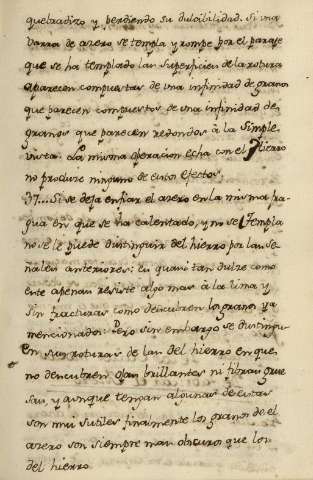 quebradizo y perdiendo su ductilidad. Si una
varra de azero se templa y rompe por el paraje
que se ha templado las superficies de la rotura
aparecen compuestas de una infinidad de granos
que parecen compuestos de una infinidad de
granos que parecen redondos à la simple
vista. La misma operacion echa con el Hierro
no produce ninguno de estos efectos.
Si se deja enfriar el azero en la misma fra-
gua en que se ha calentado, y no se templa
no se le puede distinguir del hierro por las se-
ñales anteriores: es quasi tan dulze como
este apenas resiste algo mas à la lima y
sin fracturas como descubren los granos ya
mencionados: Pero sin embargo se distingu-
en sus roturas de las del hierro en que
no descubren ojas brillantes ni fibras grue
sas y aunque tengan algunas de estas
son mui sutiles finalmente los granos de el
azero son siempre mas obscuros que los
del hierro